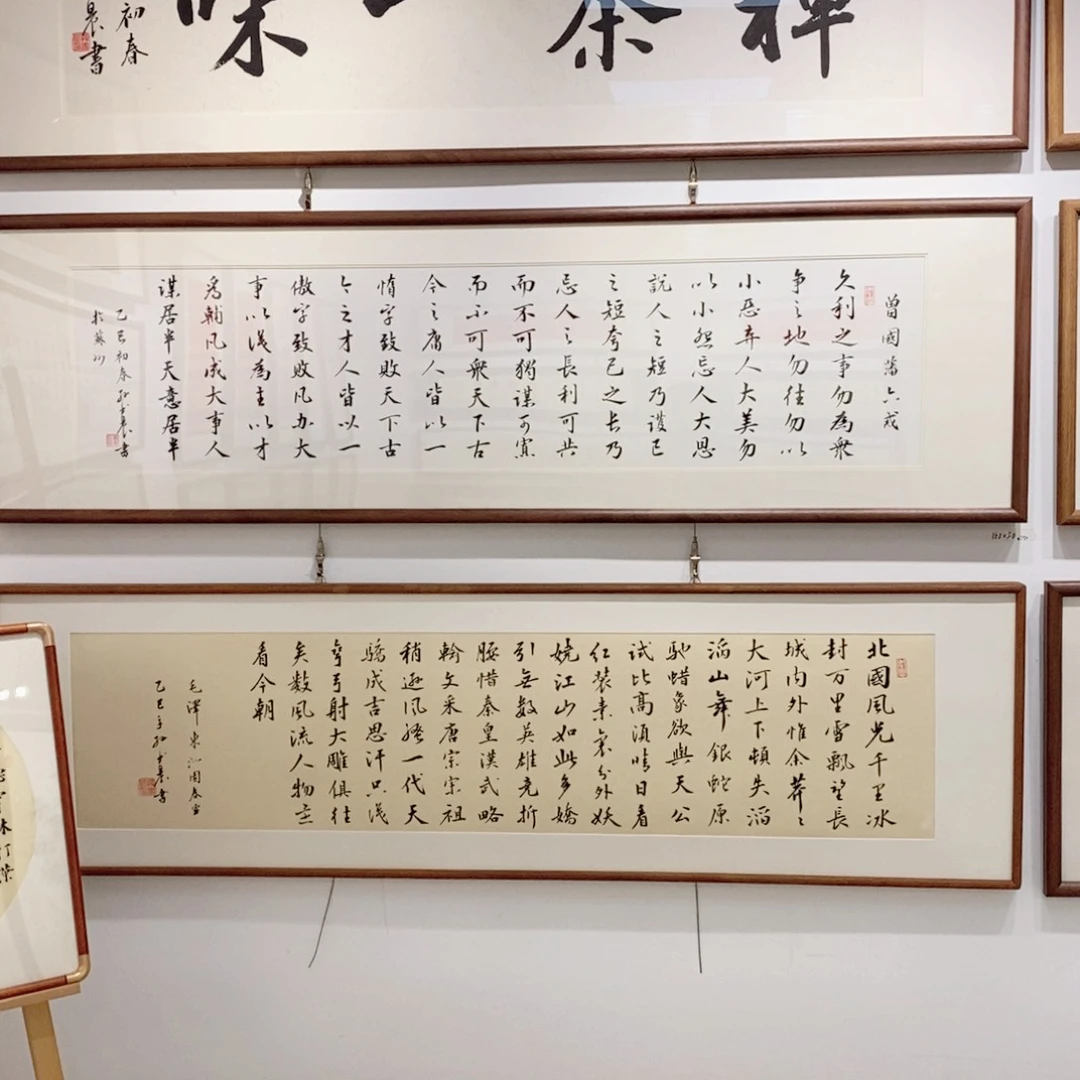 禪茶一味
初春
晨書
曾國藩六戒
久利之事勿為衆
争之地勿往勿以
小惡弃人大美勿
以小怨忘人大恩
説人之短乃護己
之短夸己之长乃
忌人之長利可共
而不可獨謀可寡
而不可衆天下古
今之庸人皆以一
惰字致敗天下古
今之才人皆以一
傲字致敗凡办大
事以识為主以才
為輔凡成大事人
謀居半天意居半
乙巳初春晨書
於蘇州
北國風光千里冰
封万里雪飄望長
城内外惟余莽〻
大河上下頓失滔
滔山舞銀蛇原
馳蜡象欲與天公
試比高須晴日看
红装素裹分外妖
娆江山如此多嬌
引無數英雄竞折
腰惜秦皇漢武略
輸文采唐宗宋祖
稍遜風騷一代天
驕成吉思汗只识
弯弓射大雕俱往
矣數風流人物还
看今朝
毛澤東沁園春雪
乙巳年晨書